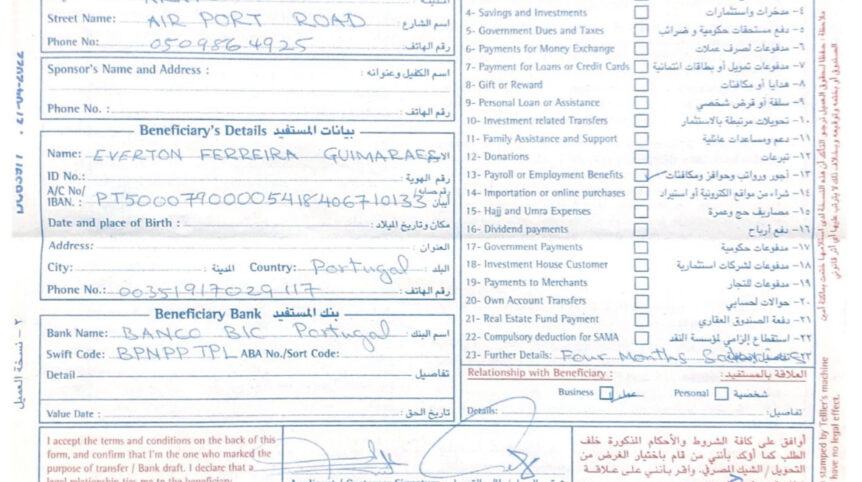 Street Name: AIR PORT ROAD اسم الشارع :
Phone No: 0509864925 رقم الهاتف:
Sponsor's Name and Address : اسم الكفيل وعنوانه :
Phone No. : رقم الهاتف:
Beneficiary's Details بيانات المستفيد
Name: EVERTON FERREIRA GUIMARAES
ID No.: رقم الهوية:
A/C No/ IBAN. : PT50007900005418406710133
Date and place of Birth : مكان وتاريخ الميلاد :
Address: العنوان:
City: المدينة: Country: Portugal البلد
Phone No.: 00351917029117 رقم الهاتف:
Beneficiary Bank بنك المستفيد
Bank Name: BANCO BIC Portugal اسم البنك:
Swift Code: BPNPPTPL ABA No./Sort Code:
Detail تفاصيل
Value Date : تاريخ الحق :
٢ – نسخة العميل
I accept the terms and conditions on the back of this
form, and confirm that I'm the one who marked the
purpose of transfer / Bank draft. I declare that a
4- Savings and Investments ٤- مدخرات واستثمارات
5- Government Dues and Taxes ٥- دفع مستحقات حكومية و ضرائب
6- Payments for Money Exchange ٦- مدفوعات لصرف عملات
7- Payment for Loans or Credit Cards ٧- مدفوعات تمويل أو بطاقات ائتمانية
8- Gift or Reward ٨- هدايا أو مكافئات
9- Personal Loan or Assistance ٩- سلفة أو قرض شخصي
10- Investment related Transfers ١٠- تحويلات مرتبطة بالاستثمار
11- Family Assistance and Support ١١- دعم ومساعدات عائلية
12- Donations ١٢- تبرعات
13- Payroll or Employment Benefits ١٣- أجور ورواتب وحوافز ومكافئات
14- Importation or online purchases ١٤- شراء من مواقع الكترونية أو استيراد
15- Hajj and Umra Expenses ١٥- مصاريف حج وعمرة
16- Dividend payments ١٦- دفع أرباح
17- Government Payments ١٧- مدفوعات حكومية
18- Investment House Customer ١٨- مدفوعات لشركات استثمارية
19- Payments to Merchants ١٩- مدفوعات للتجار
20- Own Account Transfers ٢٠- حوالات لحسابي
21- Real Estate Fund Payment ٢١- دفع الصندوق العقاري
22- Compulsory deduction for SAMA ٢٢- استقطاع إلزامي لمؤسسة النقد
23- Further Details: Four Months
Relationship with Beneficiary : العلاقة بالمستفيد:
Business عمل Personal شخصية
Details: تفاصيل:
أوافق على كافة الشروط والأحكام المذكورة خلف
الطلب كما أؤكد بأنني من قام باختيار الغرض من
التحويل/ الشيك المصرفي. وأقر بأنني على علاقة
stamped by Teller's machine
have no legal effect.